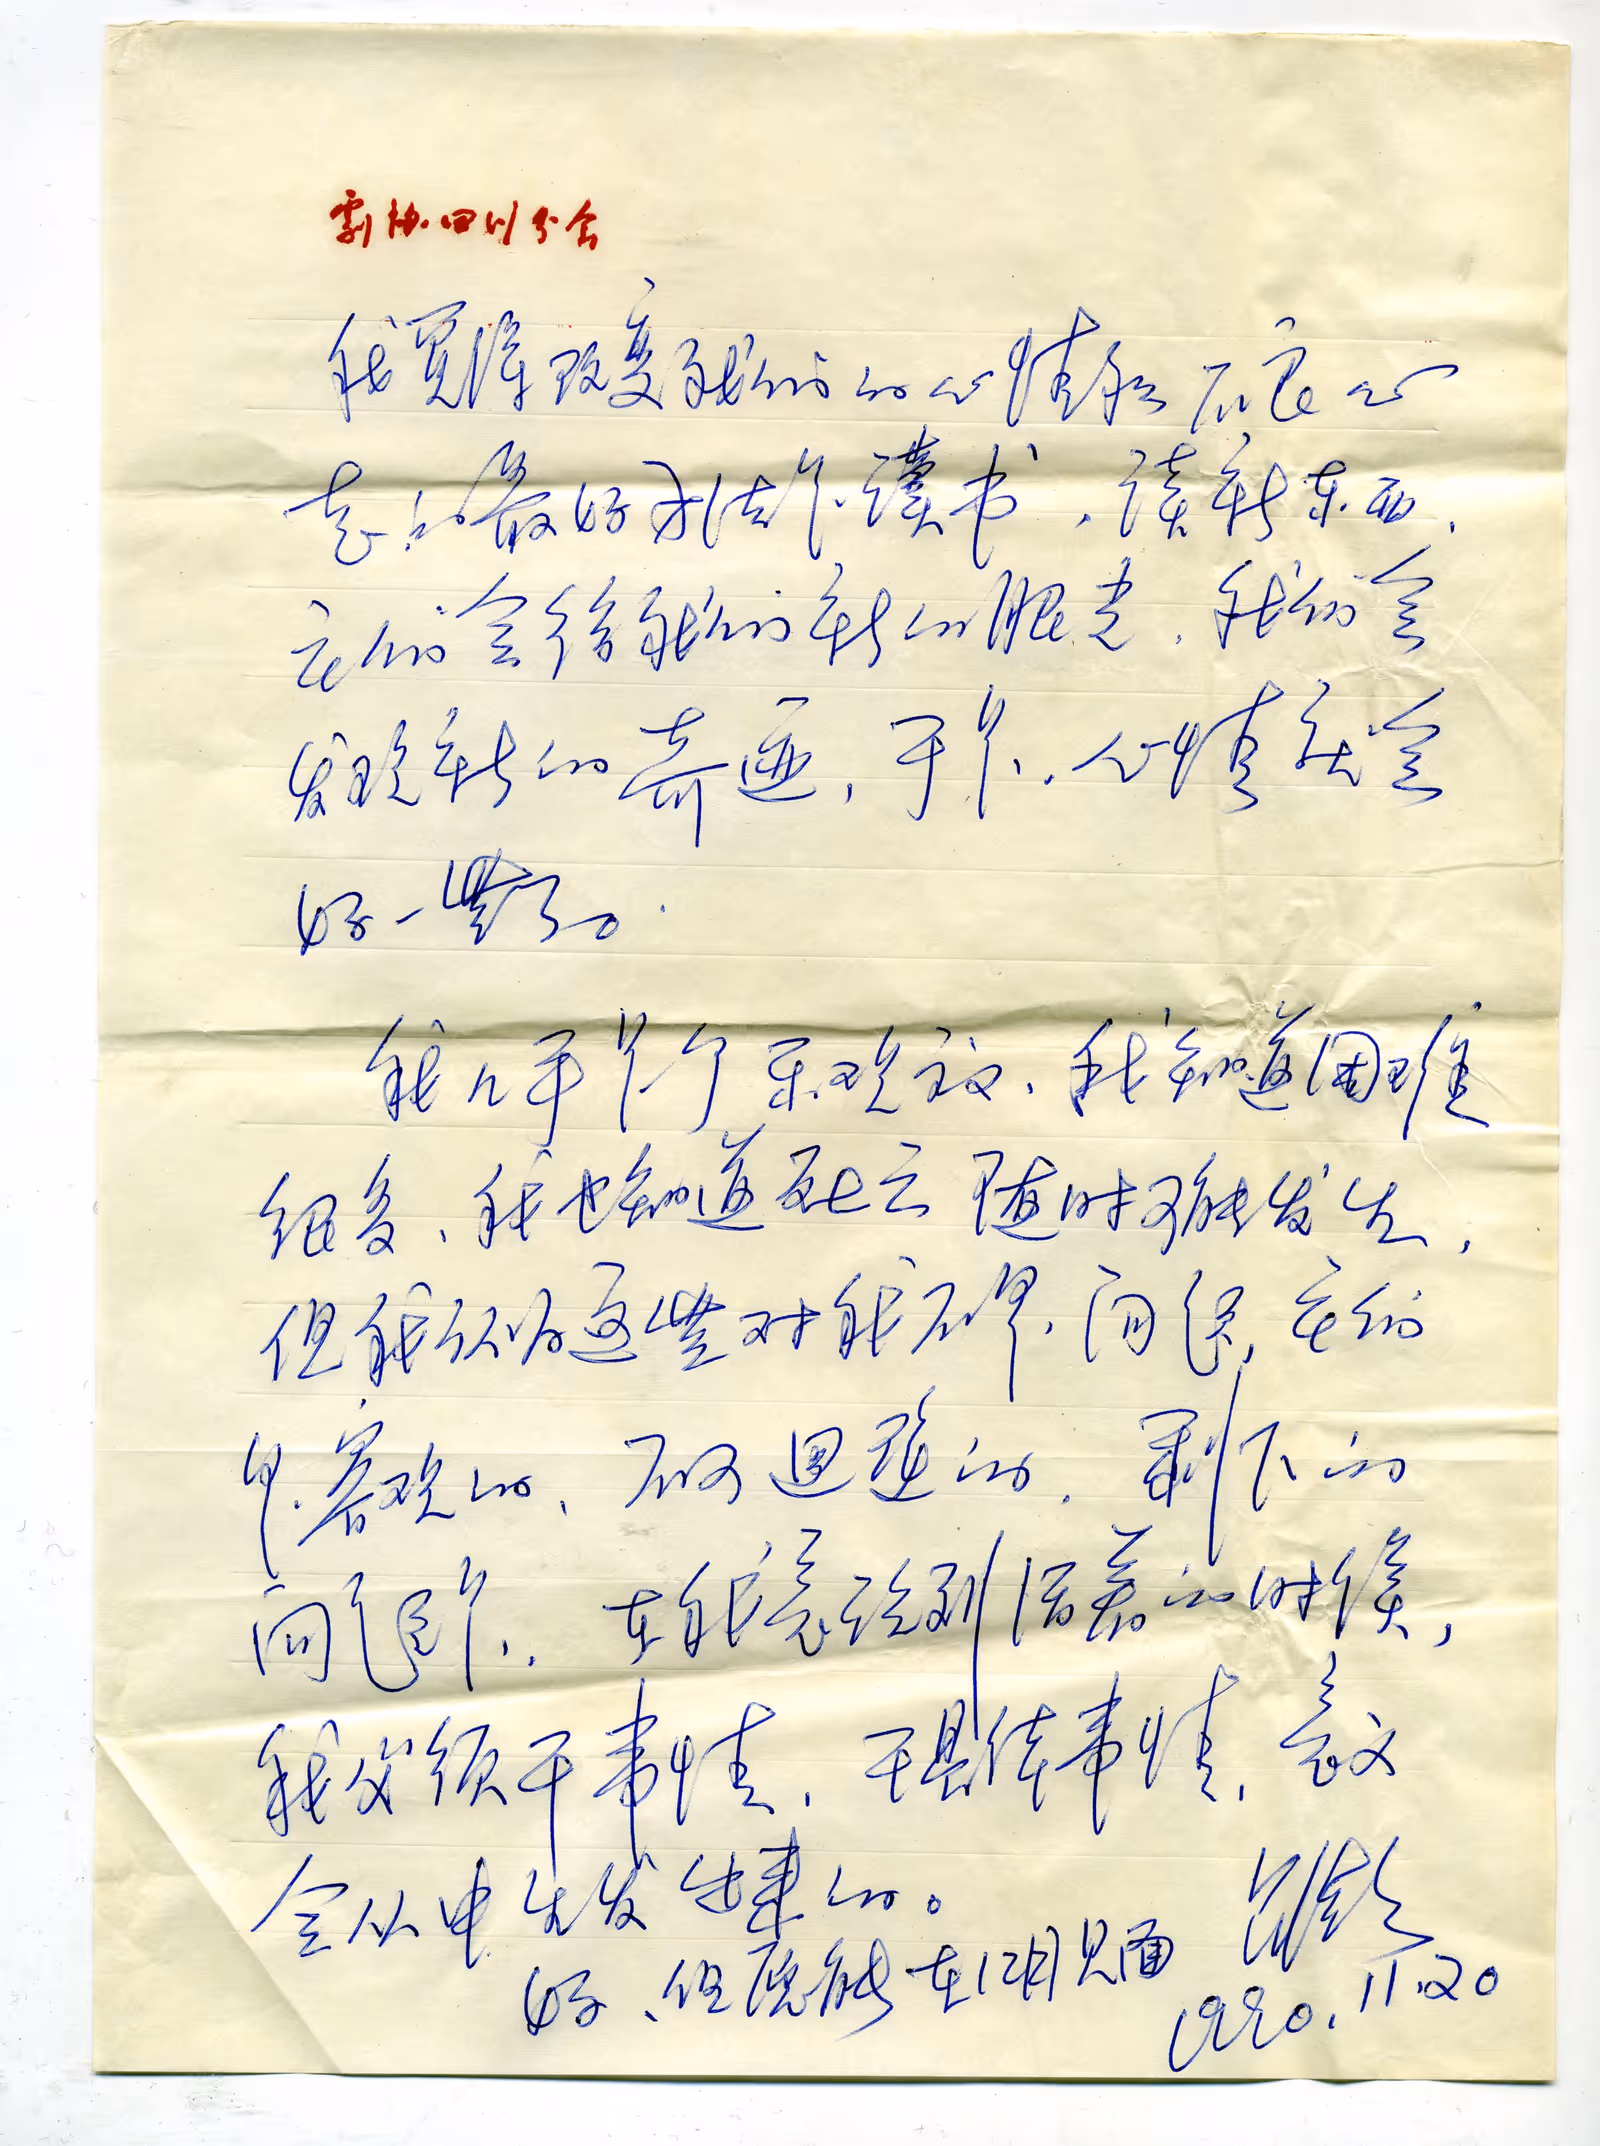 剧协四川分会
我觉得改变我们的心情和不良心
态的最好办法是读书，读新东西，
它们会给我们新的眼光，我们会
发现新的奇迹，于是，心情就会
好一些了。
我几乎是个乐观主义，我知道困难
很多，我也知道死亡随时可能发生，
但我认为这些对我不是问题，它们
是客观的、不可回避的，剩下的
问题是，在我意识到活着的时候，
我必须干事情，干具体事情，意义
会从中生发出来的。
好，但愿能在12月见面
1990.11.20